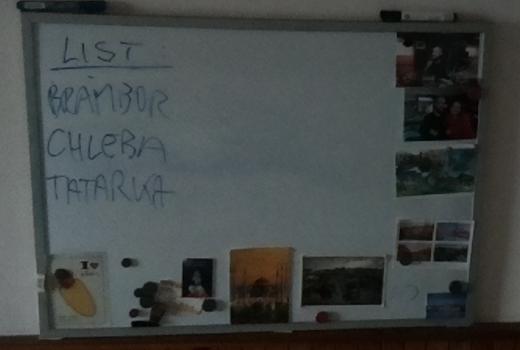 LIST
BRAMBOR
CHLEBA
TATARKA
I